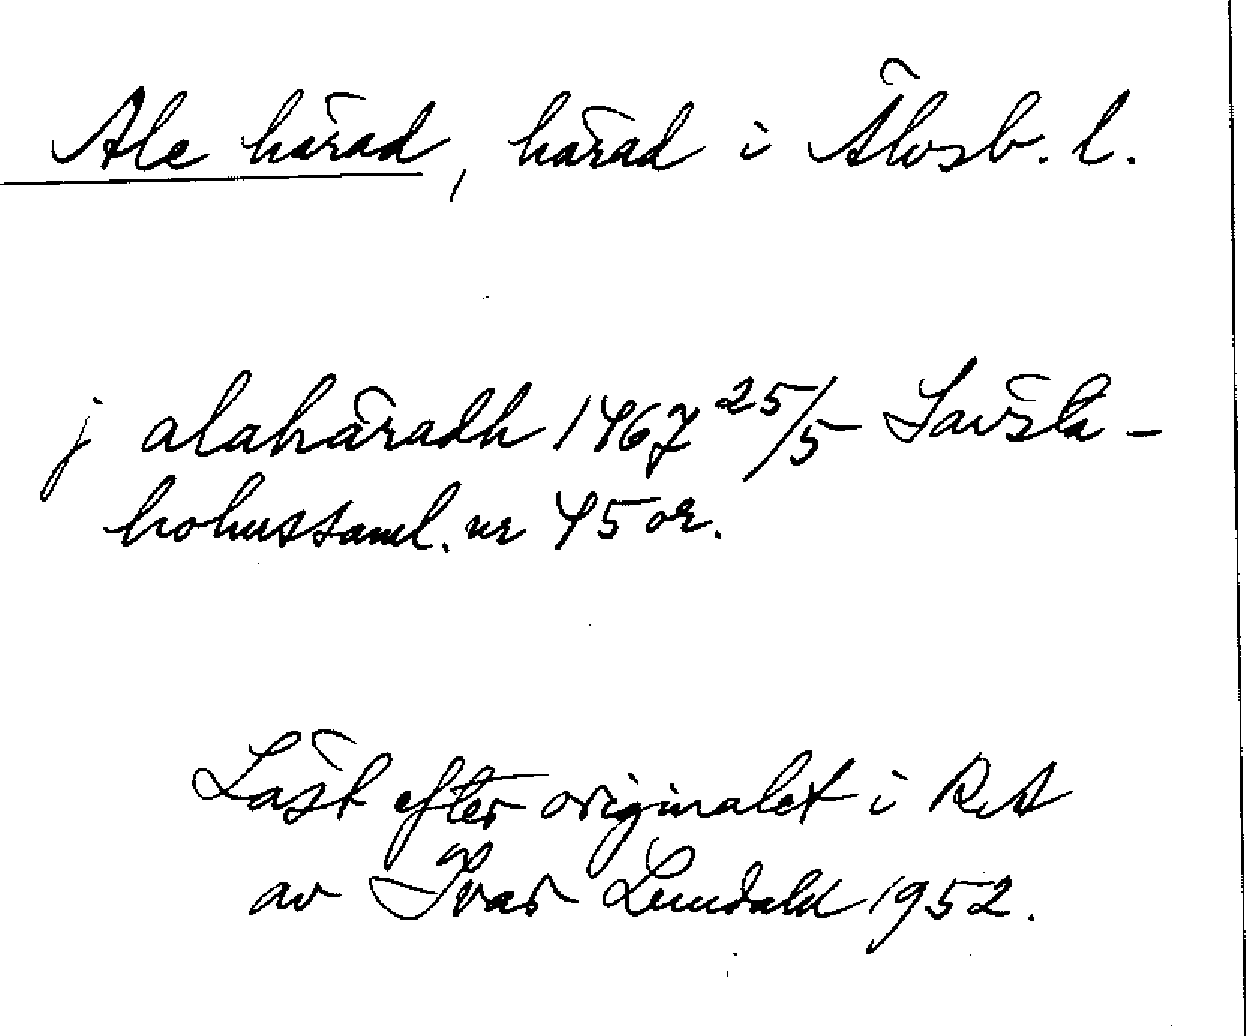 Ale härad, härad i Älvsb. l.
j alahäradh 1467 25/5 Sävsta-
holmssaml. nr 45 or.
Läst efter originalet i RA
av Ivar Lundahl 1952.